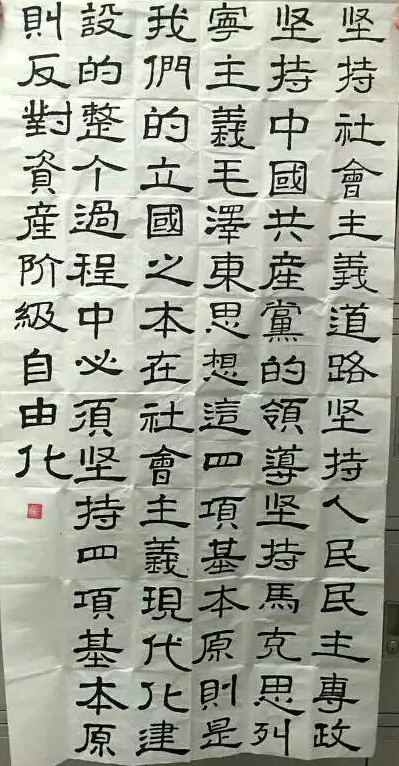 坚持社會主義道路坚持人民民主專政
坚持中國共産黨的領導坚持馬克思列
寧主義毛澤東思想這四項基本原則是
我們的立國之本在社會主義現代化建
設的整个過程中必須坚持四項基本原
則反對資産阶級自由化